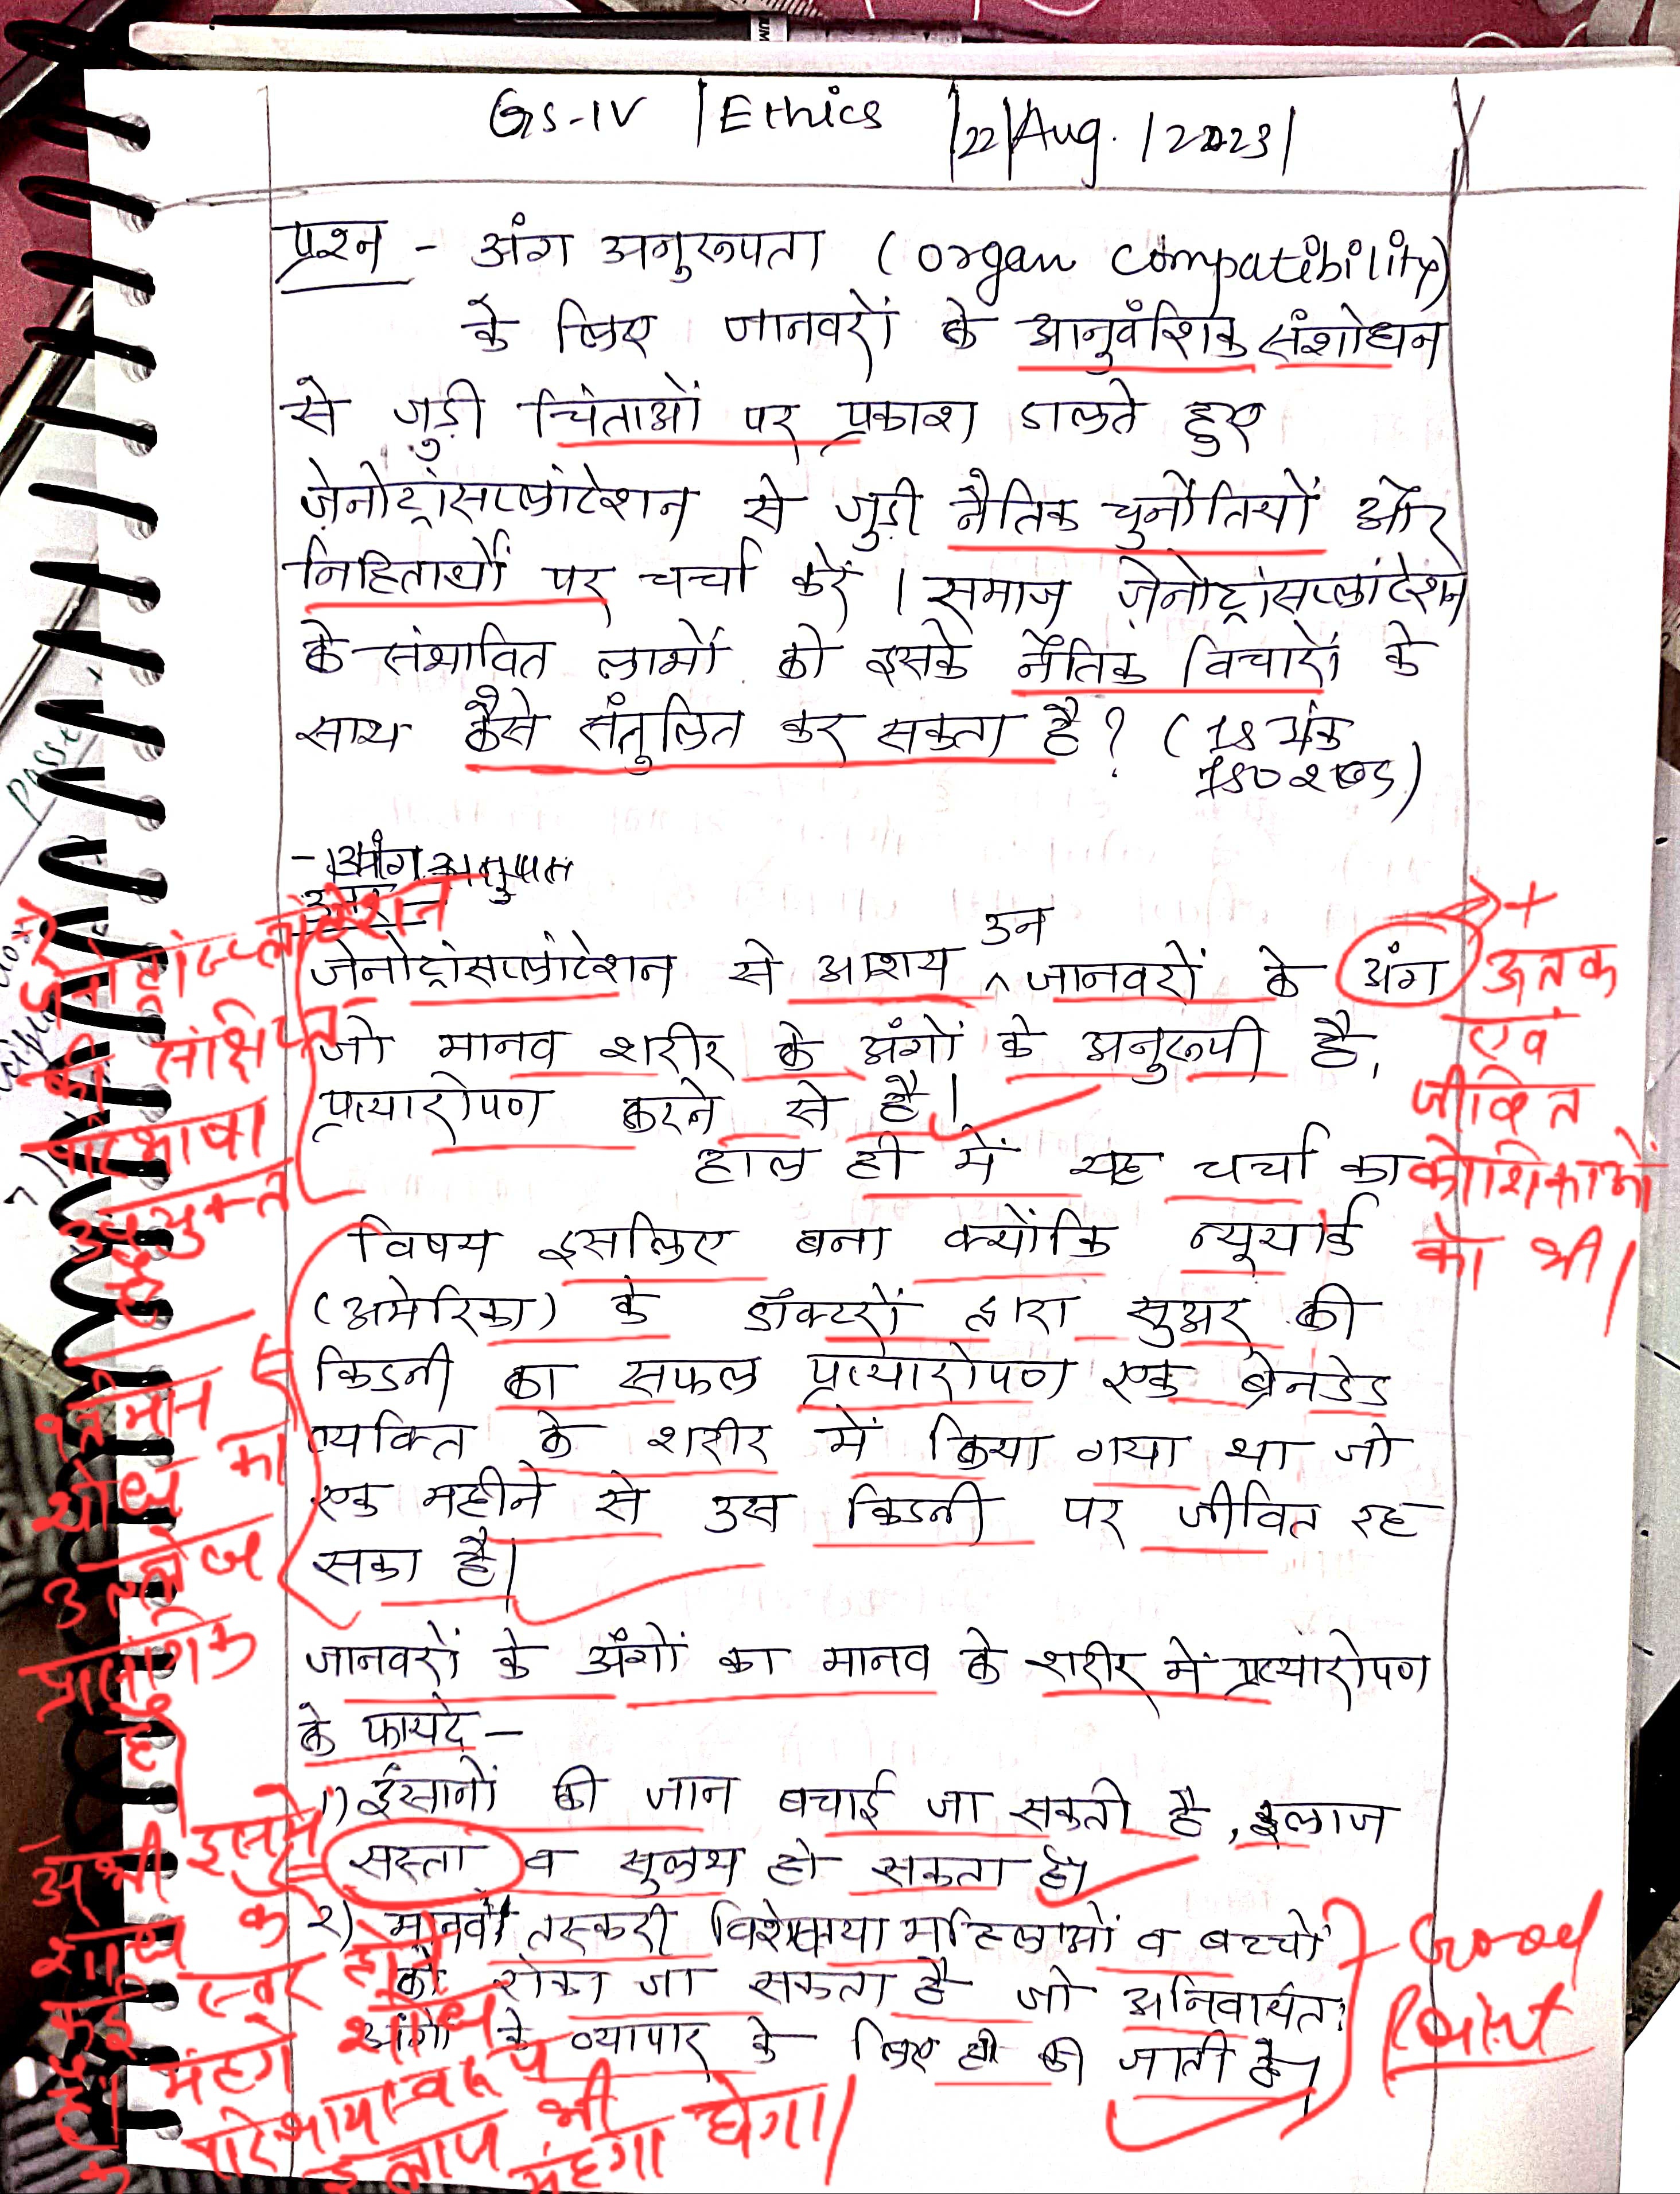 GS-IV | Ethics |22|Aug.|2023|
प्रश्न - अंग अनुरूपता (organ compatibility)
के लिए जानवरों के आनुवंशिक संशोधन
से जुड़ी चिंताओं पर प्रकाश डालते हुए
ज़ेनोट्रांसप्लांटेशन से जुड़ी नैतिक चुनौतियों और
निहितार्थों पर चर्चा करें। समाज ज़ेनोट्रांसप्लांटेशन
के संभावित लाभों को इसके नैतिक विचारों के
साथ कैसे संतुलित कर सकता है? (15 अंक
150 शब्द)
उत्तर -
उन
जेनोट्रांसप्लांटेशन से आशय ^ जानवरों के अंग
जो मानव शरीर के अंगों के अनुरूपी है,
प्रत्यारोपण करने से है।
हाल ही में यह चर्चा का
विषय इसलिए बना क्योंकि न्यूयार्क
(अमेरिका) के डॉक्टरों द्वारा सुअर की
किडनी का सफल प्रत्यारोपण एक ब्रेनडेड
व्यक्ति के शरीर में किया गया था जो
एक महीने से उस किडनी पर जीवित रह
सका है।
जानवरों के अंगों का मानव के शरीर में प्रत्यारोपण
के फायदे -
1) इंसानों की जान बचाई जा सकती है, इलाज
सस्ता व सुलभ हो सकता है।
2) मानवी तस्करी विशेषतया महिलाओं व बच्चों
को रोका जा सकता है जो अनिवार्यतः
अंगों के व्यापार के लिए ही की जाती है।
+
ऊतक
एवं
जीवित
कोशिकाओं
का भी।
जेनोट्रांसप्लांटेशन
की संक्षिप्त
परिभाषा
उपयुक्त
है
वर्तमान
शोध का
उल्लेख
प्रासंगिक
है
अभी इसमें
शोध के
कई स्तर होने
हैं। मंहगे शोध
के परिणामस्वरूप
इलाज भी
मंहगा होगा।
Good
Point